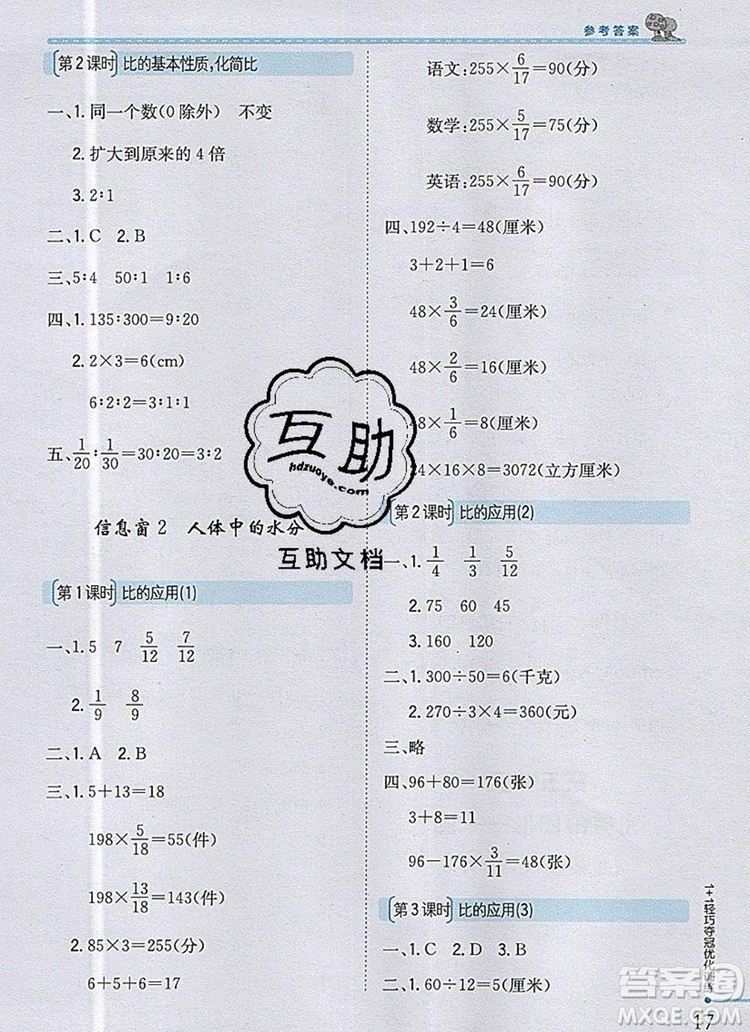 参考答案
第2课时 比的基本性质,化简比
一、1.同一个数(0除外) 不变
2.扩大到原来的4倍
3.2∶1
二、1.C 2.B
三、5∶4 50∶1 1∶6
四、1.135∶300=9∶20
2.2×3=6(cm)
6∶2=3∶1
五、1/20∶1/30=30∶20=3∶2
信息窗2 人体中的水分
第1课时 比的应用(1)
一、1.5 7 5/12 7/12
2.1/9 8/9
二、1.A 2.B
三、1.5+13=18
198×5/18=55(件)
198×13/18=143(件)
2.85×3=255(分)
6+5+6=17
语文:255×6/17=90(分)
数学:255×5/17=75(分)
英语:255×6/17=90(分)
四、192÷4=48(厘米)
3+2+1=6
48×3/6=24(厘米)
48×2/6=16(厘米)
48×1/6=8(厘米)
24×16×8=3072(立方厘米)
第2课时 比的应用(2)
一、1.1/4 1/3 5/12
2.75 60 45
3.160 120
二、1.300÷50=6(千克)
2.270÷3×4=360(元)
三、略
四、96+80=176(张)
3+8=11
96-176×3/11=48(张)
第3课时 比的应用(3)
一、1.C 2.C 3.D
二、1.60÷12=5(厘米)
1+1轻巧夺冠优化训练
17
互助
hdzuoye.com
互助文档
答案圈
MXQE.COM